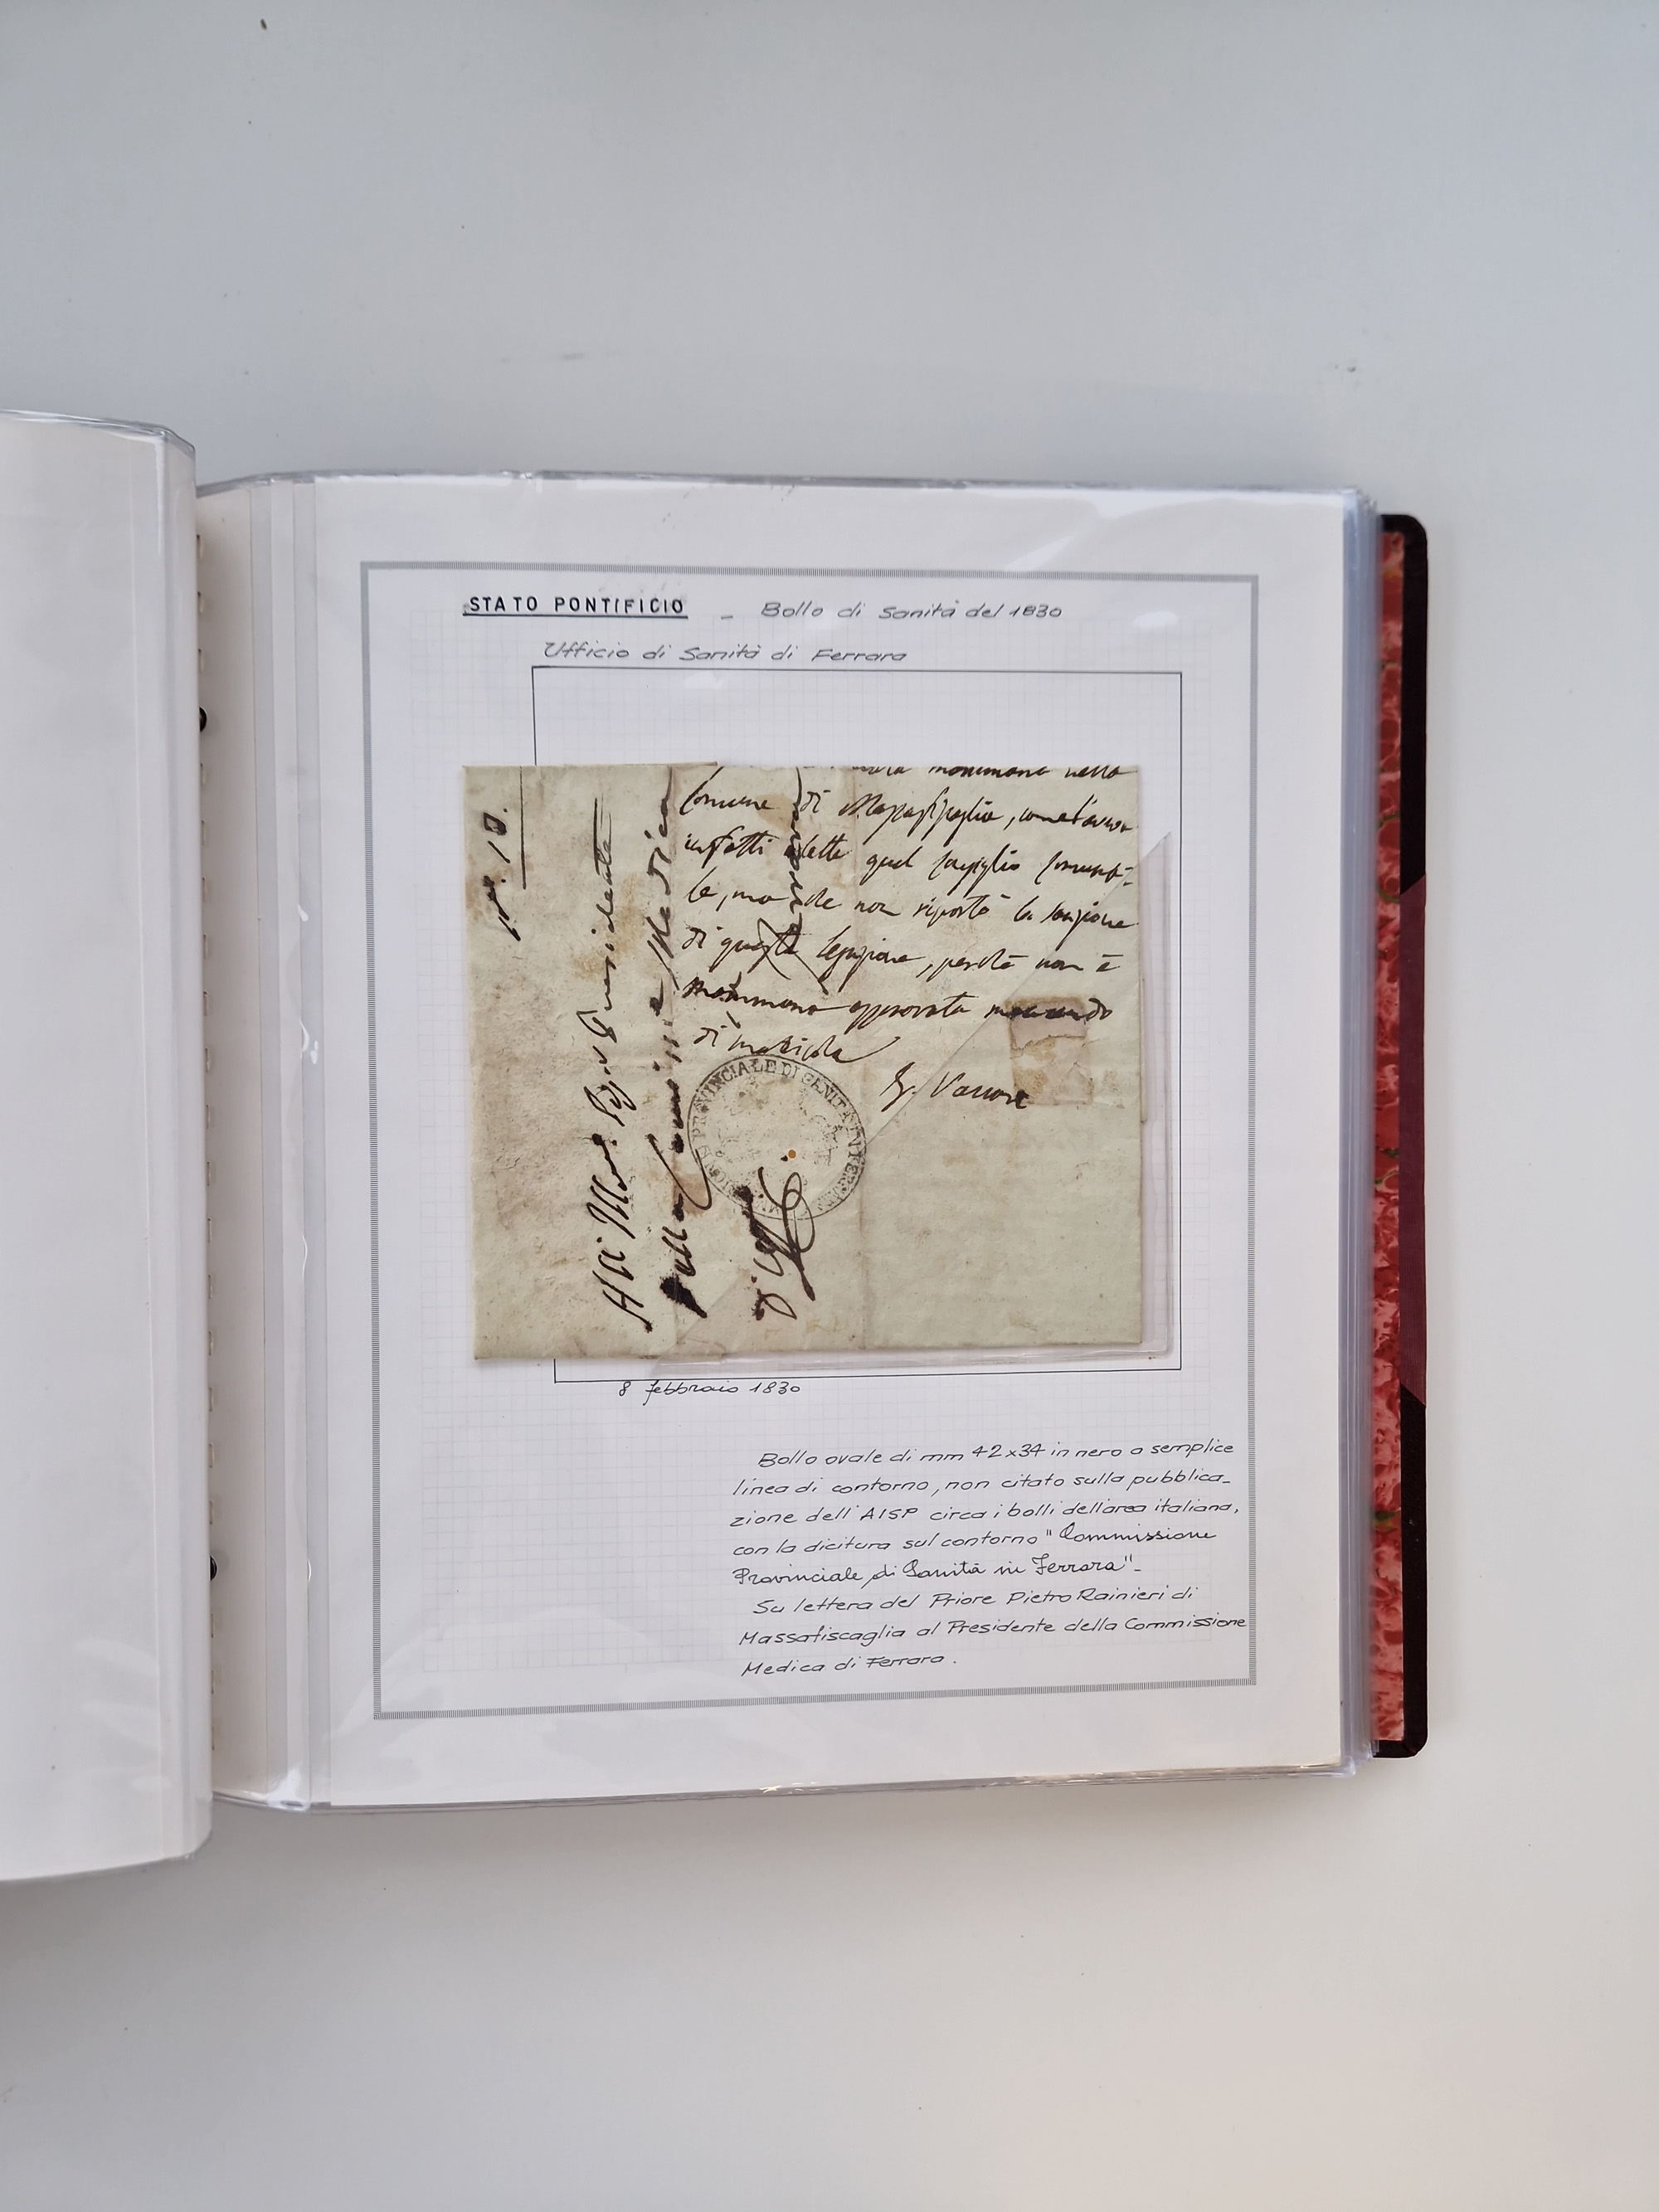 STATO PONTIFICIO - Bollo di Sanità del 1830
Ufficio di Sanità di Ferrara
N. 18.
Presidente
Della Commissione Medica
di
Ferrara
mammana nella
Comune di Massafiscaglia,
infatti elette quel Consiglio Comuna-
le, ma che non riportò la sanzione
di questa Legazione, perchè non è
mammana approvata mancando
di matricola
PROVINCIALE DI SANITA IN FERRARA
8 febbraio 1830
Bollo ovale di mm 42x34 in nero a semplice
linea di contorno, non citato sulla pubblica-
zione dell'AISP circa i bolli dell'area italiana,
con la dicitura sul contorno "Commissione
Provinciale di Sanità in Ferrara"-
Su lettera del Priore Pietro Rainieri di
Massafiscaglia al Presidente della Commissione
Medica di Ferrara.